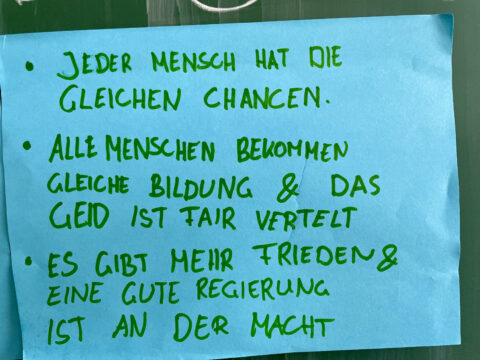 • JEDER MENSCH HAT DIE
GLEICHEN CHANCEN.
• ALLE MENSCHEN BEKOMMEN
GLEICHE BILDUNG & DAS
GEID IST FAIR VERTELT
• ES GIBT MEHR FRIEDEN &
EINE GUTE REGIERUNG
IST AN DER MACHT